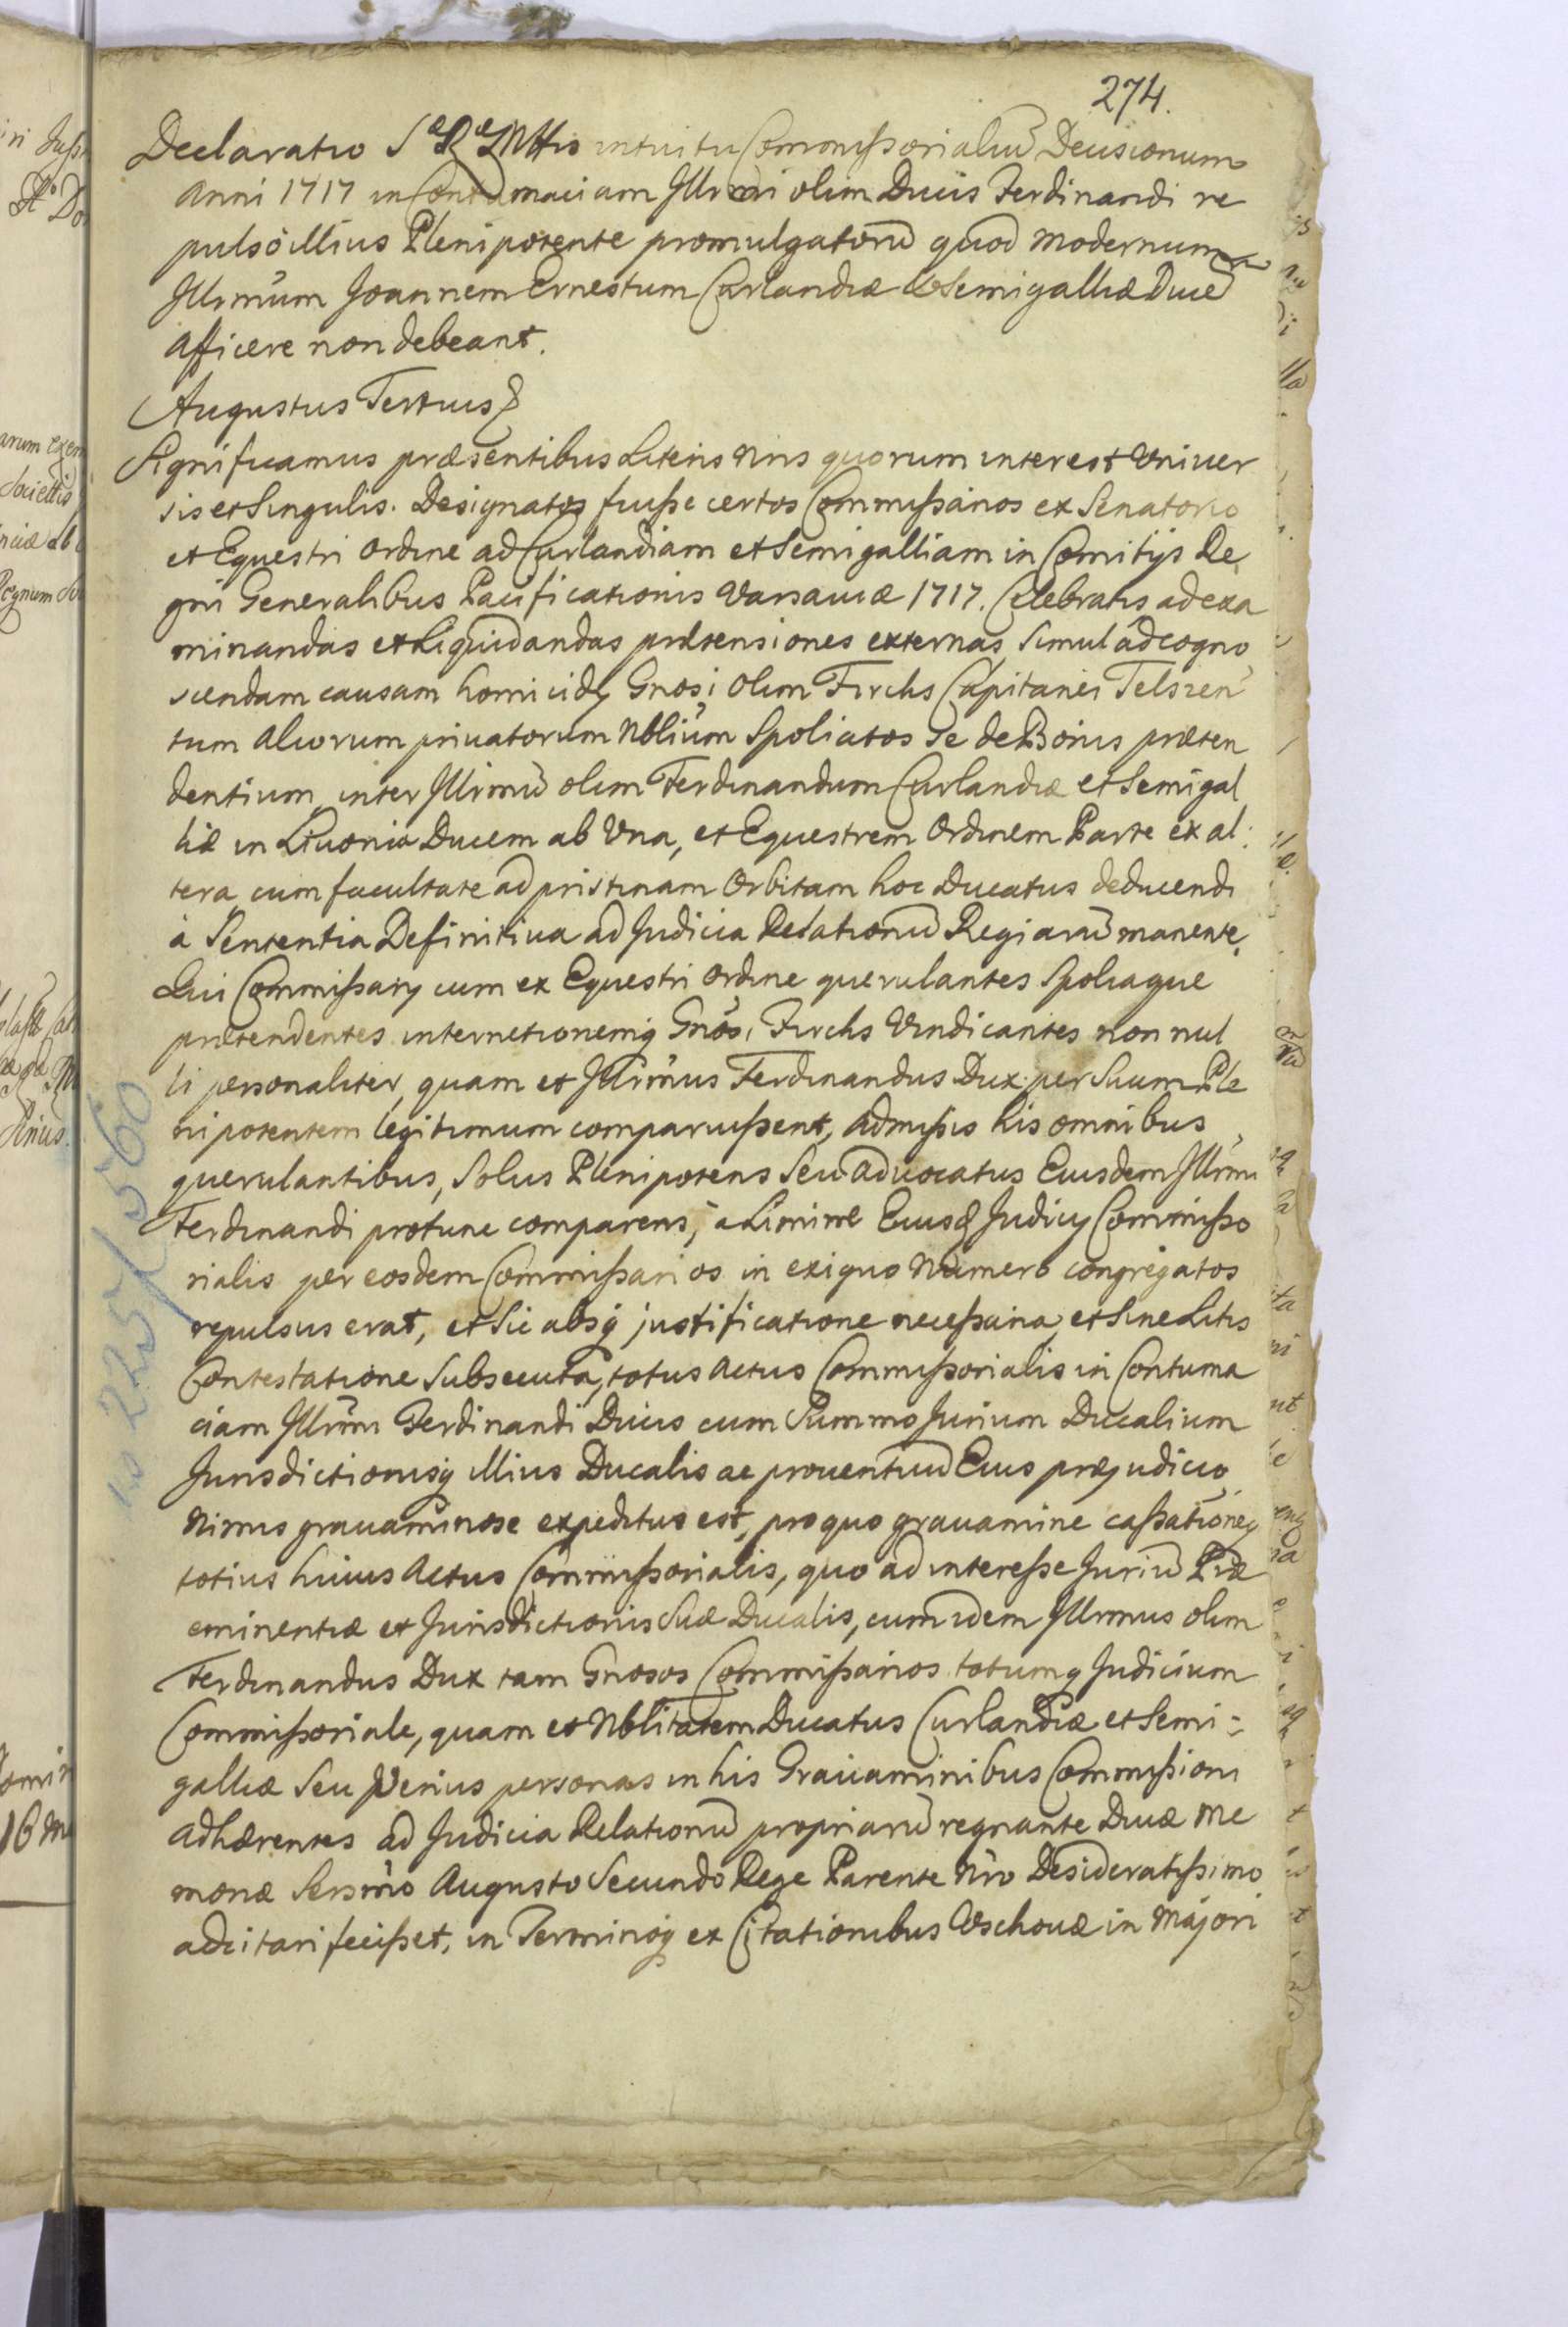 274.
Declaratio S R Mttis intuitu Commissorialiū Decisionum
anni 1717 in Contumaciam Illrmi olim Ducis Ferdinandi re
pulso illius Plenipotente promulgatorū quod modernum
Illrmum Joannem Ernestum Curlandiæ & Semigalliæ Ducē
afficere non debeant.
Augustus Tertius
Significamus præsentibus Literis Nris quorum interest Vniver
sis et Singulis. Designatos fuisse certos Commissarios ex Senatorio
et Equestri Ordine ad Curlandiam et Semigalliam in Comitijs Re
gni Generalibus Pacificationis Varsaviæ 1717. Celebratis ad exa
minandas et Liquidandas prætensiones externas, simul ad cogno
scendam causam homicidij Gnosi olim Firchs Capitanei Telszen
tum aliorum privatorum Nblium Spoliatos Se de Bonis præten
dentium, inter Illrmū olim Ferdinandum Curlandiæ et Semigal
liæ in Livonia Ducem ab Vna, et Equestrem Ordinem Parte ex al:
tera cum facultate ad pristinam Orbitam hoc Ducatus deducendi
à Sententia Definitiva ad Judicia Relationū Regiarū manente.
Qui Commissarij cum ex Equestri Ordine querulantes Spoliaque
prætendentes internetionemq Gnosi Firchs Vindicantes non nul
li personaliter, quam et Illrmus Ferdinandus Dux per Suum Ple
nipotentem legitimum comparuissent, admissis his omnibus
querulantibus, Solus Plenipotens Seu advocatus Eiusdem Illrmi
Ferdinandi protunc comparens, a Limine Eiusd Judicij Commisso
rialis per eosdem Commissarios in exiguo Numero congregatos
repulsus erat, et Sic absq justificatione necessaria, et Sine Litis
Contestatione Subsecuta, totus actus Commissorialis in Contuma
ciam Illrmi Ferdinandi Ducis cum Summo Jurium Ducalium
Jurisdictionisq illius Ducalis ac proventuū Eius præjudicio
Nimis gravaminose expeditus est, pro quo gravamine cassationeq
totius huius Actus Commissorialis, quo ad interesse Juriū Præ
eminentiæ et Jurisdictionis Suæ Ducalis, cum idem Illrmus olim
Ferdinandus Dux tam Gnosos Commissarios totumq Judicium
Commissoriale, quam et Nblitatem Ducatus Curlandiæ et Semi=
galliæ Seu Verius personas in his Gravaminibus Commissioni
adhærentes ad Judicia Relationū propriarū regnante Divæ Me
moriæ Sersmo Augusto Secundo Rege Parente Nro Desideratissimo
adcitari fecisset, in Terminoq ex Citationibus Vschovæ in Majori
225/560